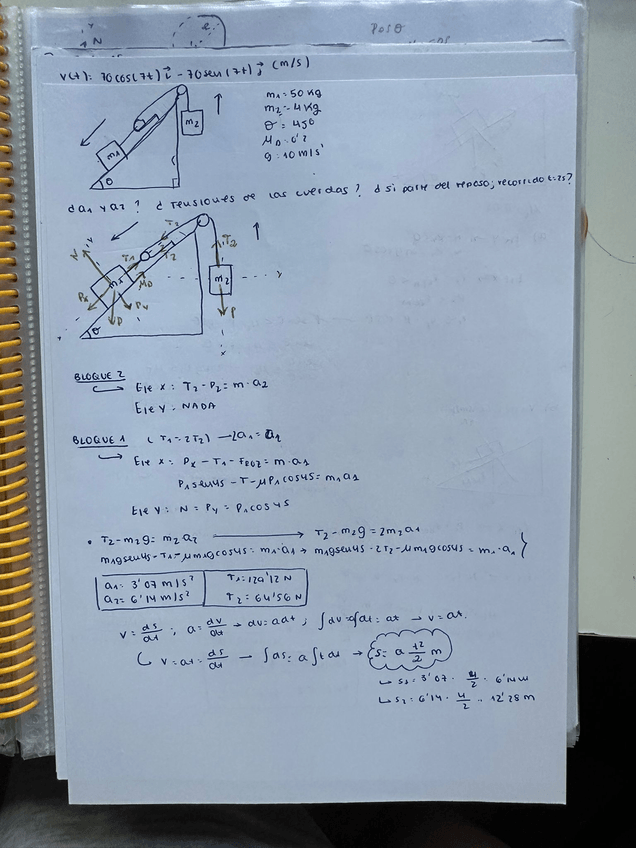 N
v(t): 70cos(7t)i - 70sen(7t)j (m/s)
m1 = 50 Kg
m2 = 4 Kg
θ = 45º
μD = 0'2
g = 10 m/s²
m1
m2
θ
¿a1 y a2? ¿Tensiones de las cuerdas? ¿si parte del reposo; recorrido t=2s?
T2
T1
T2
T2
m1
m2
μD
Px
Py
P
P
θ
x
BLOQUE 2
Eje x: T2 - P2 = m·a2
Eje y: NADA
BLOQUE 1 (T1 = 2T2) → 2a1 = a2
Eje x: Px - T1 - FROZ = m·a1
P1sen45 - T - μP1cos45 = m1a1
Eje y: N = Py = P1cos45
• T2 - m2g = m2a2 → T2 - m2g = 2m2a1
m1gsen45 - T1 - μm1gcos45 = m1·a1 → m1gsen45 - 2T2 - μm1gcos45 = m1·a1 }
a1 = 3'07 m/s² T1 = 129'12 N
a2 = 6'14 m/s² T2 = 64'56 N
v = ds/dt ; a = dv/dt → dv = adt ; ∫dv = a∫dt = at → v = at.
v = at = ds/dt → ∫ds = a∫tdt → s = a t²/2 m
→ s1 = 3'07 · 4/2 = 6'14 m
→ s2 = 6'14 · 4/2 = 12'28 m